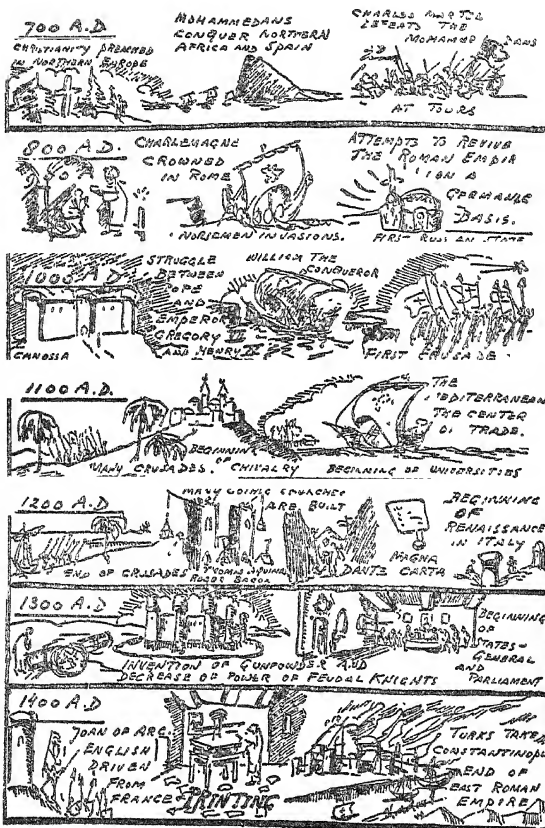 700 A.D
CHRISTIANITY PREACHED
IN NORTHERN EUROPE
MOHAMMEDANS
CONQUER NORTHERN
AFRICA AND SPAIN
CHARLES MARTEL
DEFEATS THE
MOHAMMEDANS
AT TOURS
800 A.D.
CHARLEMAGNE
CROWNED
IN ROME
NORSEMEN INVASIONS.
ATTEMPTS TO REVIVE
THE ROMAN EMPIR
ON A
GERMANIC
BASIS.
FIRST RUSSIAN STATE
1000 A D
CANOSSA
STRUGGLE
BETWEEN
POPE
AND
EMPEROR
GREGORY VII
AND HENRY IV
WILLIAM THE
CONQUEROR
FIRST CRUSADE.
1100 A.D.
MANY CRUSADES.
BEGINNING
OF
CHIVALRY
THE
MEDITERRANEAN
THE CENTER
OF TRADE.
BEGINNING OF UNIVERSITIES
1200 A.D
END OF CRUSADES
MANY GOTHIC CHURCHES
ARE BUILT
THOMAS AQUINAS
ROGER BACON
DANTE
MAGNA
CARTA
BEGINNING
OF
RENAISSANCE
IN ITALY
1300 A.D
INVENTION OF GUNPOWDER AND
DECREASE OF POWER OF FEUDAL KNIGHTS
BEGINNING
OF
STATES-
GENERAL
AND
PARLIAMENT
1400 A.D
JOAN OF ARC.
ENGLISH
DRIVEN
FROM
FRANCE
PRINTING
TURKS TAKE
CONSTANTINOPLE
END OF
EAST ROMAN
EMPIRE